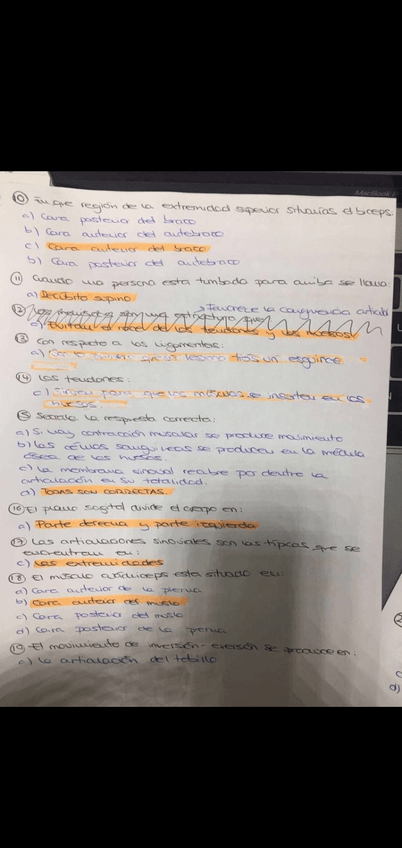 MacBook P
⑩ En que región de la extremidad superior situarías el bíceps:
a) Cara posterior del brazo
b) Cara anterior del antebrazo
c) Cara anterior del brazo
b) Cara posterior del antebrazo
⑪ Cuando una persona esta tumbado para arriba se llama:
a) Decúbito supino
⑫ → Favorece la congruencia articular
a) Evitan el roce de los tendones y los huesos
⑬ Con respecto a los ligamentos:
a) tras un esguince
⑭ Los tendones:
c) Sirven para que los músculos se inserten en los
huesos
⑮ Señale la respuesta correcta:
a) Si hay contracción muscular se produce movimiento
b) Las células sanguíneas se producen en la médula
ósea de los huesos.
c) La membrana sinovial recubre por dentro la
articulación en su totalidad.
d) TODAS SON CORRECTAS.
⑯ El plano sagital divide el cuerpo en:
a) Parte derecha y parte izquierda
⑰ Las articulaciones sinoviales son las típicas, que se
encuentran en:
c) Las extremidades
⑱ El músculo cuádriceps esta situado en:
a) Cara anterior de la pierna
b) Cara anterior del muslo
c) Cara posterior del muslo
d) Cara posterior de la pierna
⑲ El movimiento de inversión-eversión se produce en:
a) La articulación del tobillo
d)